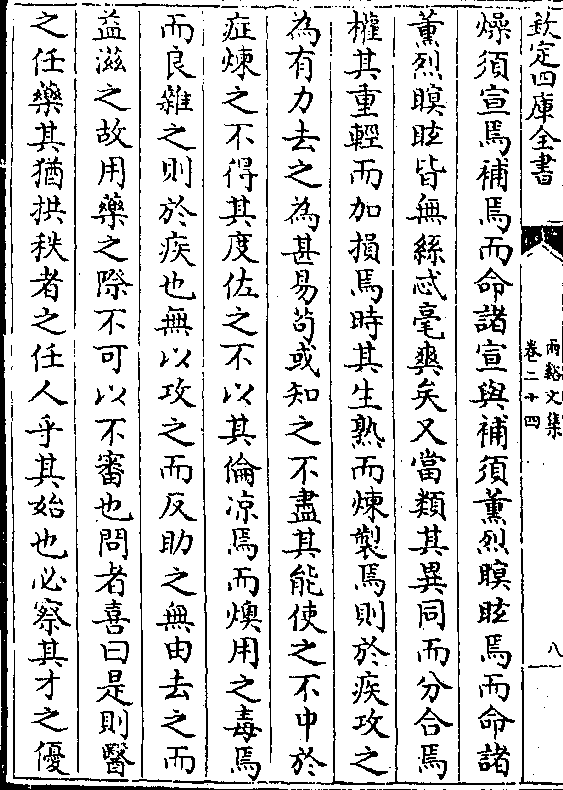 欽定四庫全書
兩谿文集
卷二十四
八
燥須宣焉補焉而命諸宣與補須薰烈瞑眩焉而命諸
薰烈瞑眩皆無絲忒毫爽矣又當類其異同而分合焉
權其重輕而加損焉時其生熟而煉製焉則於疾攻之
為有力去之為甚易茍或知之不盡其能使之不中於
症煉之不得其度佐之不以其倫凉焉而燠用之毒焉
而良雜之則於疾也無以攻之而反助之無由去之而
益滋之故用藥之際不可以不審也問者喜曰是則醫
之任藥其猶拱秩者之任人乎其始也必察其才之優